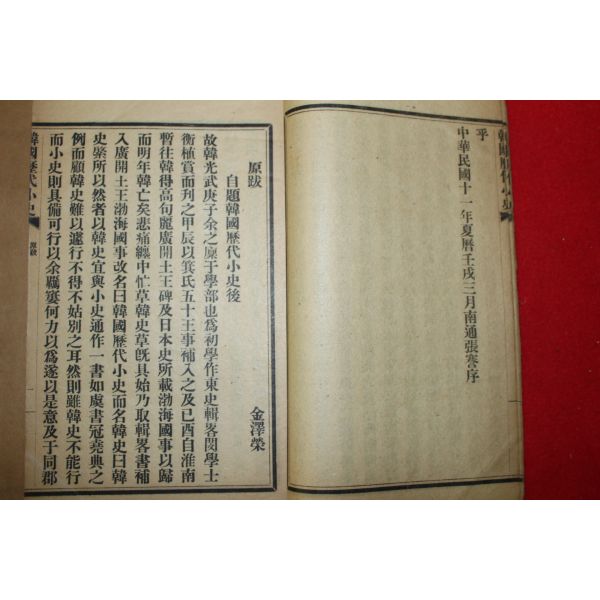 韓國歷代小史
乎
中華民國十一年夏曆壬戌三月南通張謇序
原跋
自題韓國歷代小史後
金澤榮
故韓光武庚子余之廩于學部也爲初學作東史輯畧閔學士
衡植賞而刋之甲辰以箕氏五十王事補入之及己酉自淮南
暫往韓得高句麗廣開土王碑及日本史所載渤海國事以歸
而明年韓亡矣悲痛纏中忙草韓史草旣具始乃取輯畧書補
入廣開土王渤海國事改名曰韓國歷代小史而名韓史曰韓
史綮所以然者以韓史宜與小史通作一書如虞書冠堯典之
例而顧韓史難以遽行不得不姑別之耳然則雖韓史不能行
而小史則具備可行以余羈窶何力以爲遂以是意及于同郡
韓國歷代小史
原跋
一